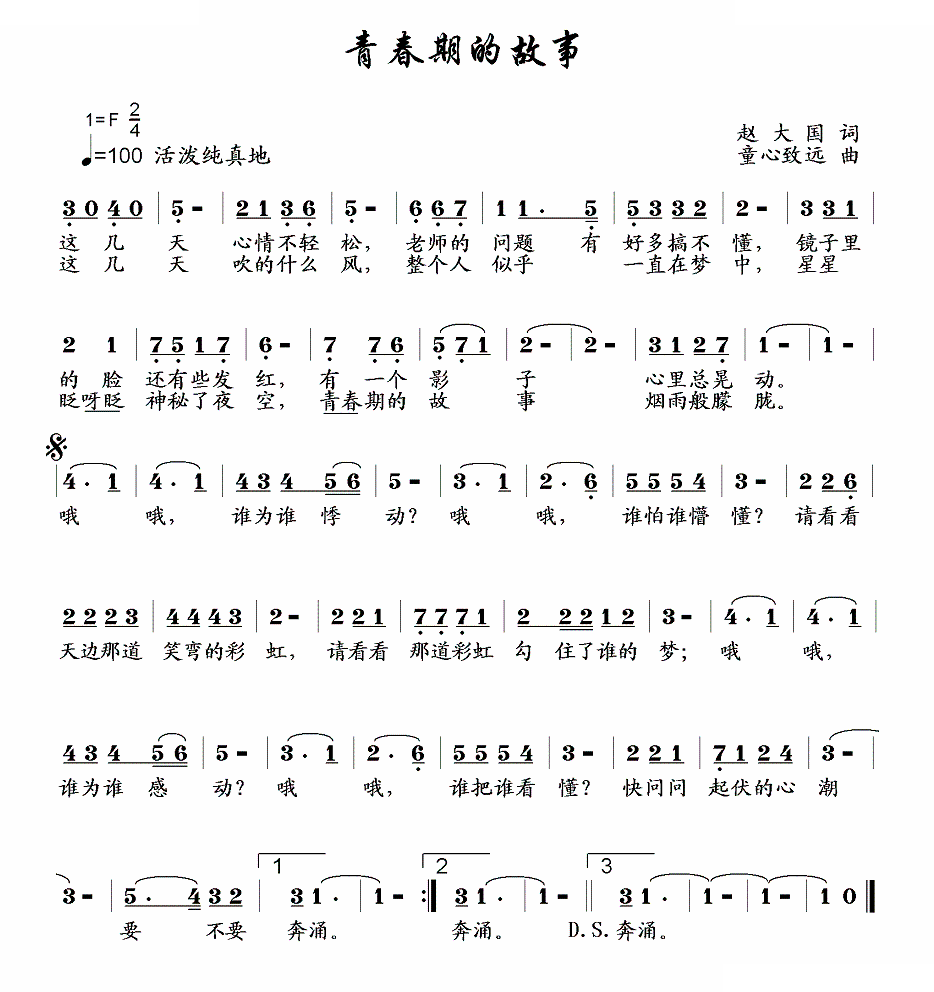 青春期的故事
1=F 2/4
♩=100 活泼纯真地
赵大国 词
童心致远 曲
3 0 4 0 | 5 - | 2 1 3 6 | 5 - | 6 6 7 | 1 1 . 5 | 5 3 3 2 | 2 - | 3 3 1 |
这几天 心情不轻松, 老师的 问题 有 好多搞不懂, 镜子里
这几天 吹的什么风, 整个人 似乎 一直在梦中, 星星
2 1 | 7 5 1 7 | 6 - | 7 7 6 | 5 7 1 | 2 - | 2 - | 3 1 2 7 | 1 - | 1 - |
的脸 还有些发红, 有一个影子 心里总晃动。
眨呀眨 神秘了夜空, 青春期的故事 烟雨般朦胧。
4 . 1 | 4 . 1 | 4 3 4 5 6 | 5 - | 3 . 1 | 2 . 6 | 5 5 5 4 | 3 - | 2 2 6 |
哦 哦, 谁为谁 悸动? 哦 哦, 谁怕谁懵懂? 请看看
2 2 2 3 | 4 4 4 3 | 2 - | 2 2 1 | 7 7 7 1 | 2 2 2 1 2 | 3 - | 4 . 1 | 4 . 1 |
天边那道 笑弯的彩虹, 请看看 那道彩虹 勾住了谁的梦; 哦 哦,
4 3 4 5 6 | 5 - | 3 . 1 | 2 . 6 | 5 5 5 4 | 3 - | 2 2 1 | 7 1 2 4 | 3 - |
谁为谁 感动? 哦 哦, 谁把谁看懂? 快问问 起伏的心潮
1 2 3
3 - | 5 . 4 3 2 | 3 1 . | 1 - :| 3 1 . | 1 - || 3 1 . | 1 - | 1 - | 1 0 |
要 不要 奔涌。 奔涌。 D.S.奔涌。